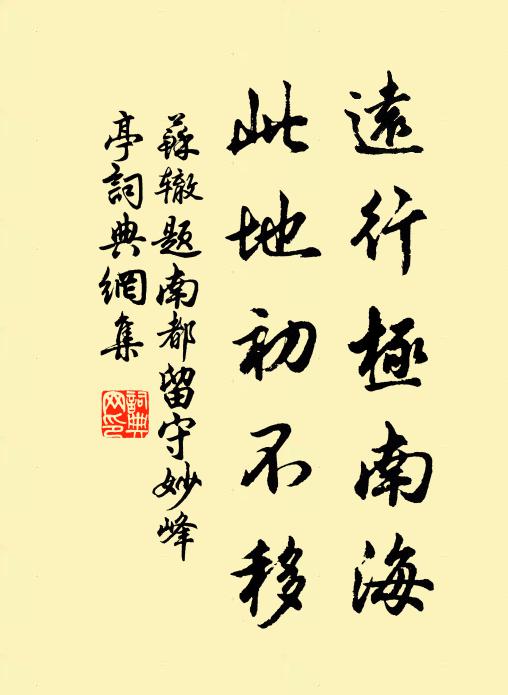 遠行極南海
此地初不移
蘇辙題南都留守妙峰
亭詞典網集
詞典
网印